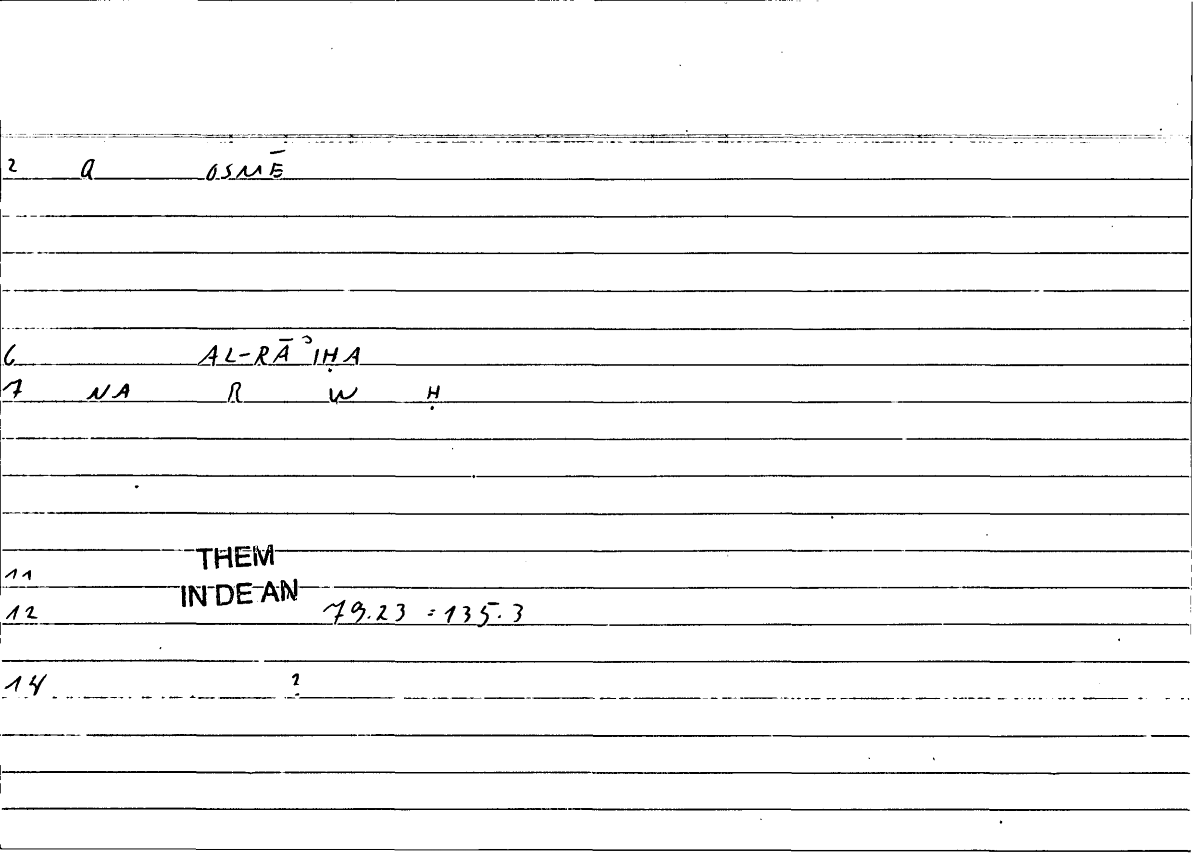 2 a OSMĒ
6 AL-RĀʾIḤA
7 NA R W Ḥ
THEM
11
IN DE AN
12 79.23 = 135.3
14 ?